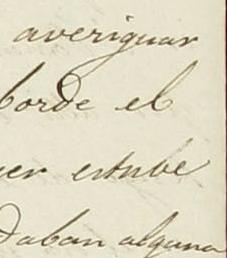 averiguar
borde el
er estube
daban alguna